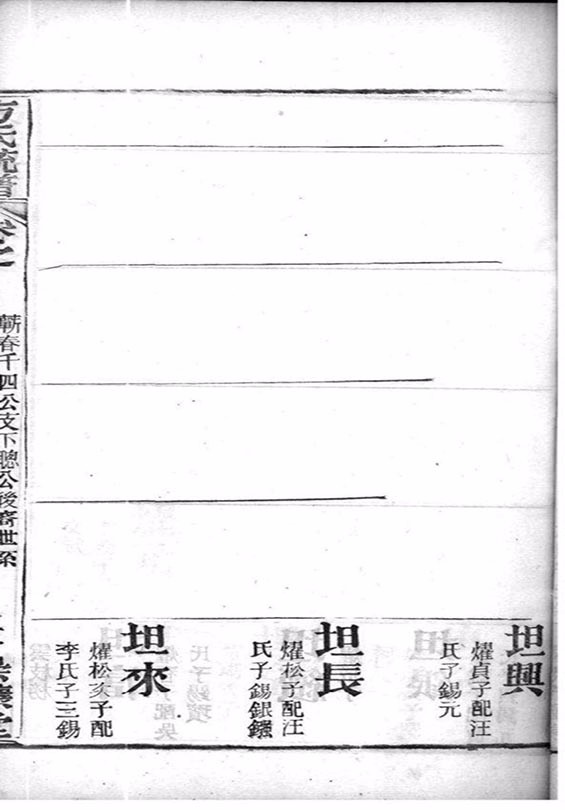 坦興
燿貞子配汪
氏子錫元
坦長
燿松子配汪
氏子錫銀
坦來
燿松次子配
李氏子三錫
方氏統譜
卷之
蘄春千四公支下聰公後裔世系